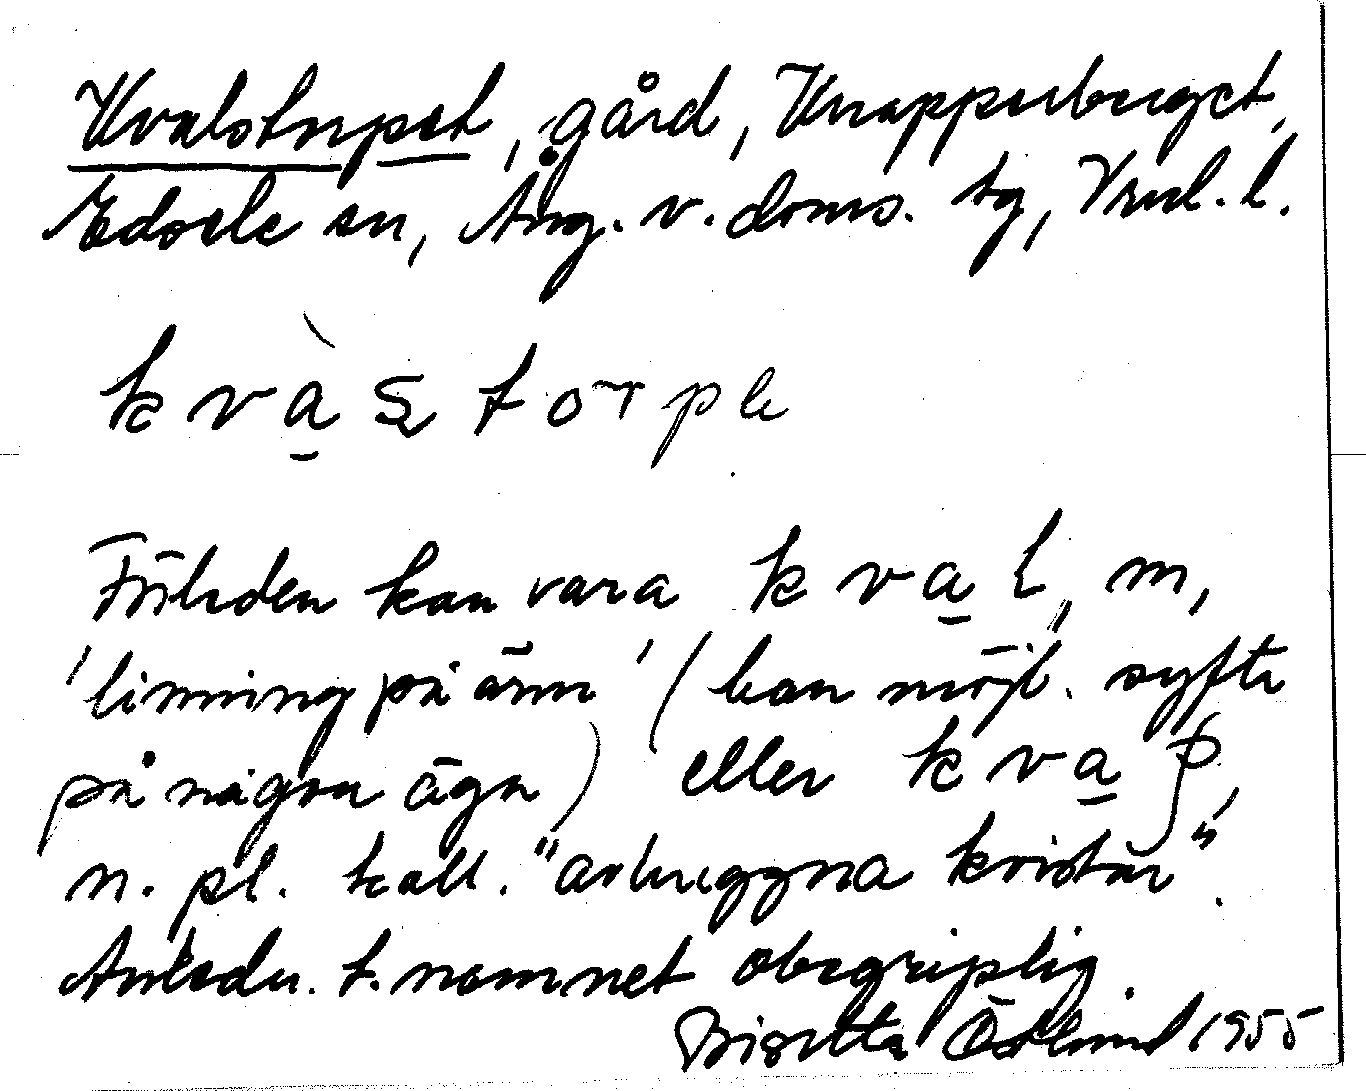 Kvalstorpet, gård, Knapperberget,
Edsele sn, Ång. v. doms. tg, Vnl. l.
kvàstorpe
Förleden kan vara kval, m,
'linning på ärm' (kan möjl. syfta
på några ägor) eller kvaf,
n. pl. koll. "avhuggna kvistar".
Anledn. t. namnet obegriplig.
Birgitta Östlund 1955